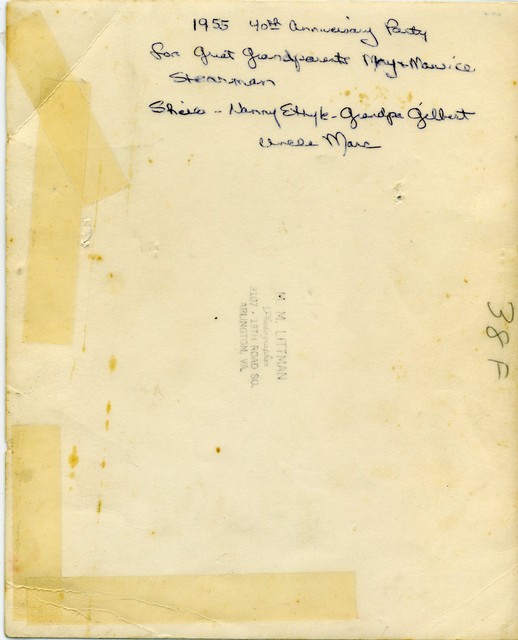 1955 40th Anniversary Party
for Great Grandparents May & Maurice
Stearman
Sheila - Nanny Ethyle - Grandpa Gilbert
Uncle Marc
M. M. LITTMAN
Photographer
ARLINGTON, VA.
38F